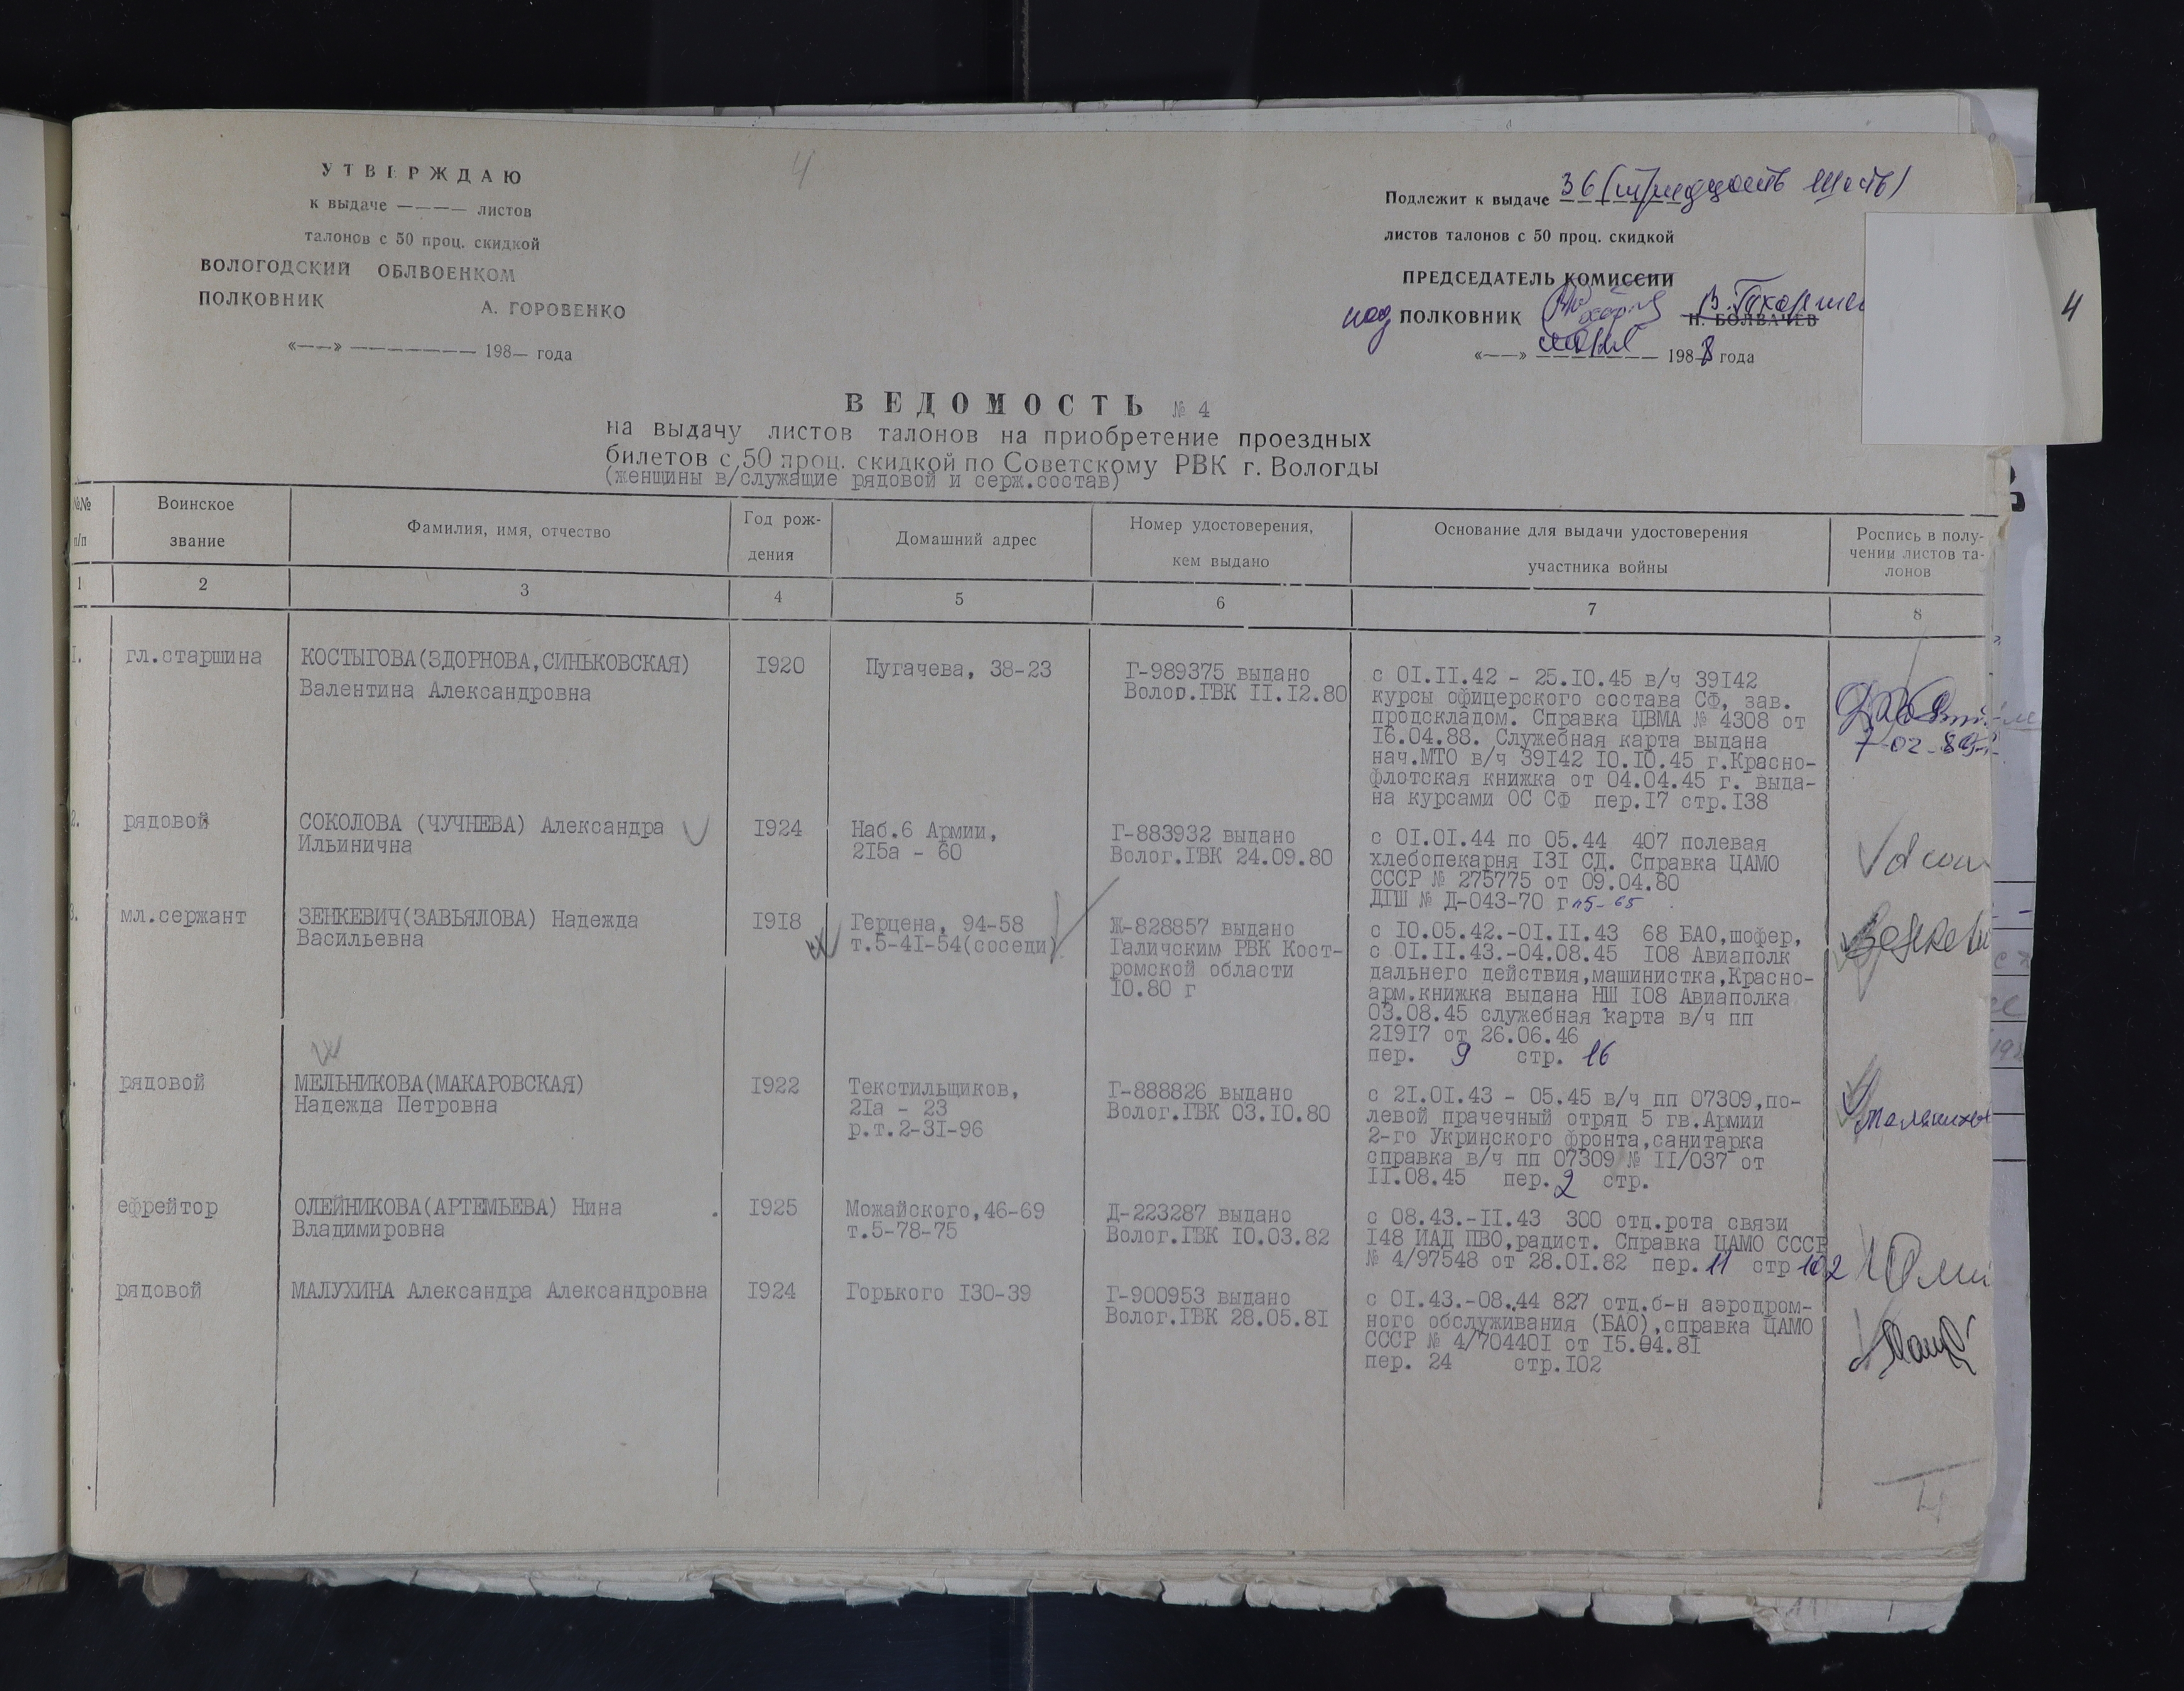 4
УТВЕРЖДАЮ
к выдаче ———— листов
талонов с 50 проц. скидкой
ВОЛОГОДСКИЙ ОБЛВОЕНКОМ
ПОЛКОВНИК А. ГОРОВЕНКО
«——» ——————— 198— года
Подлежит к выдаче 36 (тридцать шесть)
листов талонов с 50 проц. скидкой
ПРЕДСЕДАТЕЛЬ КОМИССИИ
под ПОЛКОВНИК Н. БОЛВАЧЕВ
«——» 1988 года
4
ВЕДОМОСТЬ № 4
на выдачу листов талонов на приобретение проездных
билетов с 50 проц. скидкой по Советскому РВК г. Вологды
(женщины в/служащие рядовой и серж.состав)
№№ п/п
Воинское звание
Фамилия, имя, отчество
Год рож-
дения
Домашний адрес
Номер удостоверения,
кем выдано
Основание для выдачи удостоверения
участника войны
Роспись в полу-
чении листов та-
лонов
1 2 3 4 5 6 7 8
1.
гл.старшина
КОСТЫГОВА(ЗДОРНОВА,СИНЬКОВСКАЯ)
Валентина Александровна
1920
Пугачева, 38-23
Г-989375 выдано
Волог.ГВК II.12.80
с 01.II.42 - 25.10.45 в/ч 39142
курсы офицерского состава СФ, зав.
продскладом. Справка ЦВМА № 4308 от
16.04.88. Служебная карта выдана
нач.МТО в/ч 39142 10.10.45 г.Красно-
флотская книжка от 04.04.45 г. выда-
на курсами ОС СФ пер.17 стр.138
7-02-89г.
2.
рядовой
СОКОЛОВА (ЧУЧНЕВА) Александра
Ильинична
1924
Наб.6 Армии,
215а - 60
Г-883932 выдано
Волог.ГВК 24.09.80
с 01.01.44 по 05.44 407 полевая
хлебопекарня 131 СД. Справка ЦАМО
СССР № 275775 от 09.04.80
ДПШ № Д-043-70 г
3.
мл.сержант
ЗЕНКЕВИЧ(ЗАВЬЯЛОВА) Надежда
Васильевна
1918
Герцена, 94-58
т.5-41-54(соседи)
Ж-828857 выдано
Галичским РВК Кост-
ромской области
10.80 г
с 10.05.42.-01.II.43 68 БАО,шофер,
с 01.II.43.-04.08.45 108 Авиаполк
дальнего действия,машинистка,Красно-
арм.книжка выдана НШ 108 Авиаполка
03.08.45 служебная карта в/ч пп
21917 от 26.06.46
пер. 9 стр. 16
рядовой
МЕЛЬНИКОВА(МАКАРОВСКАЯ)
Надежда Петровна
1922
Текстильщиков,
21а - 23
р.т.2-31-96
Г-888826 выдано
Волог.ГВК 03.10.80
с 21.01.43 - 05.45 в/ч пп 07309,по-
левой прачечный отряд 5 гв.Армии
2-го Укринского фронта,санитарка
справка в/ч пп 07309 № II/037 от
II.08.45 пер. 2 стр.
ефрейтор
ОЛЕЙНИКОВА(АРТЕМЬЕВА) Нина
Владимировна
1925
Можайского,46-69
т.5-78-75
Д-223287 выдано
Волог.ГВК 10.03.82
с 08.43.-II.43 300 отд.рота связи
148 ИАД ПВО,радист. Справка ЦАМО СССР
№ 4/97548 от 28.01.82 пер. 11 стр 102
рядовой
МАЛУХИНА Александра Александровна
1924
Горького 130-39
Г-900953 выдано
Волог.ГВК 28.05.81
с 01.43.-08.44 827 отд.б-н аэродром-
ного обслуживания (БАО),справка ЦАМО
СССР № 4/704401 от 15.04.81
пер. 24 стр.102